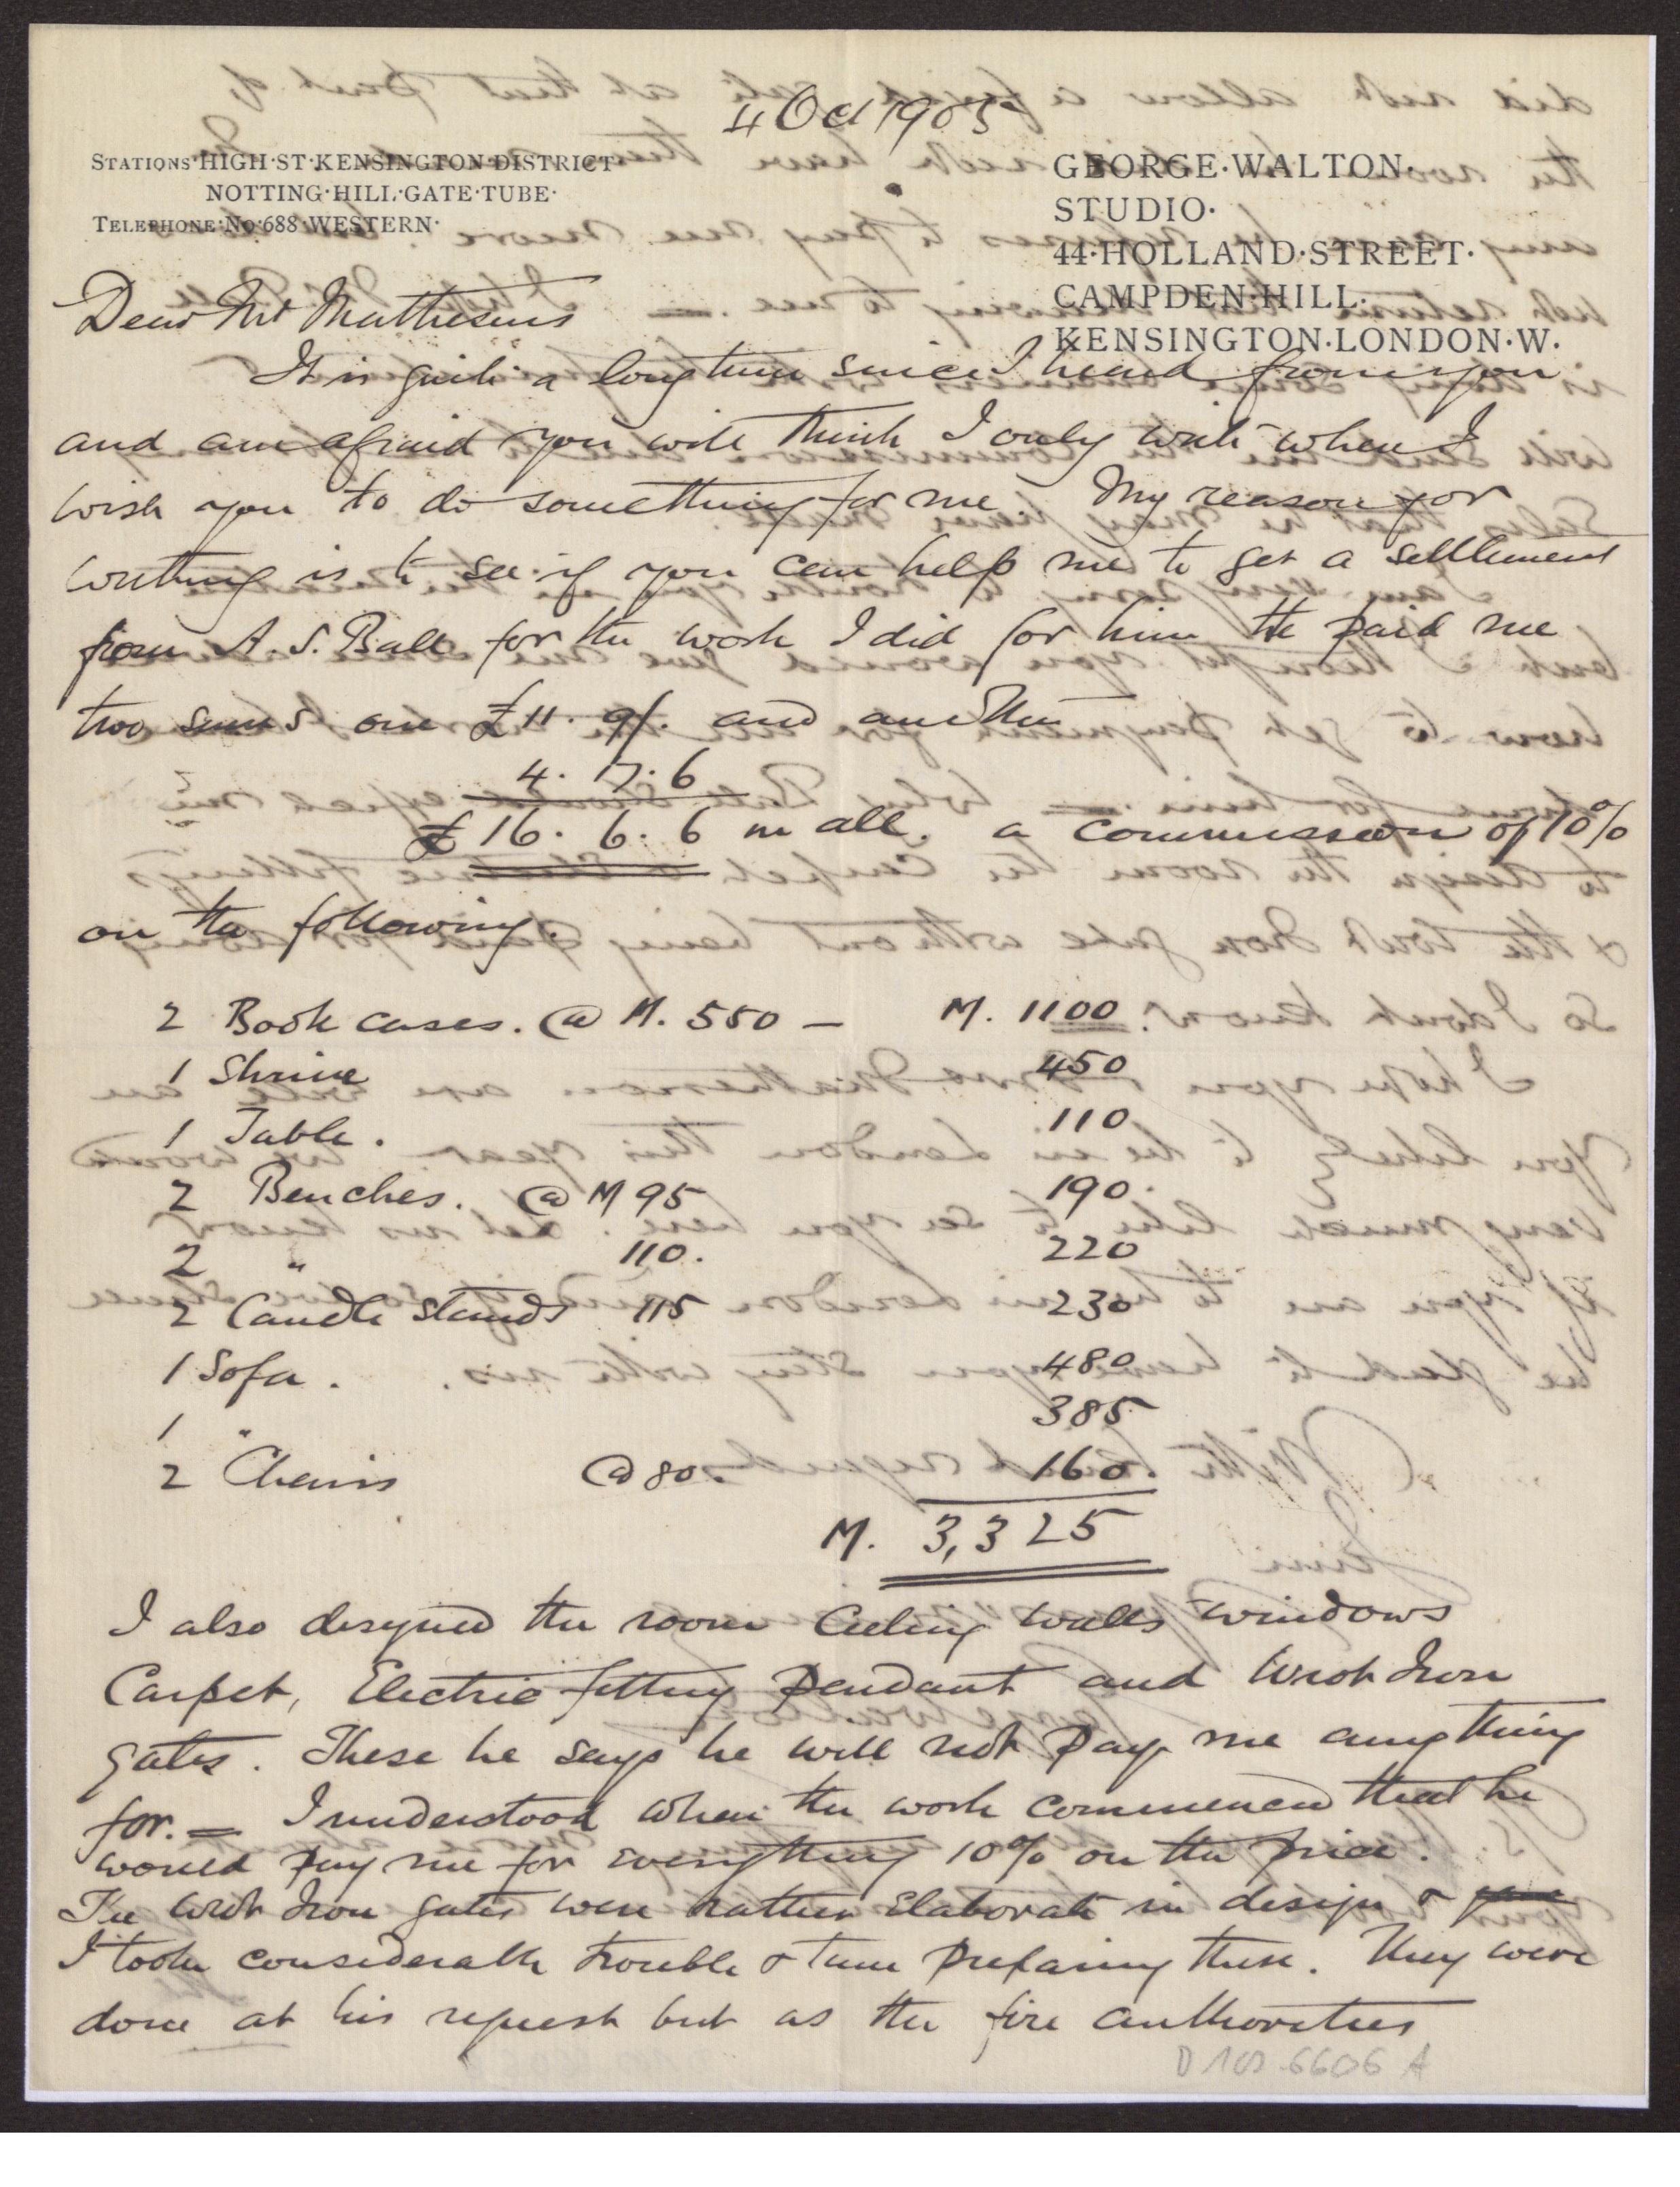 4 Oct 1905
STATIONS·HIGH·ST·KENSINGTON·DISTRICT·
NOTTING·HILL·GATE·TUBE·
TELEPHONE·No·688·WESTERN·
GEORGE·WALTON·
STUDIO·
44·HOLLAND·STREET·
CAMPDEN·HILL·
KENSINGTON·LONDON·W.
Dear Mr Mathesius
It is quite a long time since I heard from you
and am afraid you will think I only write when I
wish you to do something for me. My reason for
writing is to see if you can help me to get a settlement
from A. S. Ball for the work I did for him He paid me
two sums one £11. 9/. and another
4. 17. 6
£16. 6. 6 in all. a commission of 10%
on the following.
2 Book cases. @ M. 550 — M. 1100
1 Shrine 450
1 Table. 110
2 Benches. @ M 95 190.
2 " 110. 220
2 Candle stands 115 230
1 Sofa. 480
1 " 385
2 Chairs @ 80. 160.
M. 3,325
I also designed the room Ceiling walls windows
Carpet, Electric fitting Pendant and Wrot Iron
gates. These he says he will not pay me anything
for. — I understood when the work commenced that he
would pay me for everything 10% on the price.
The Wrot Iron gates were rather elaborate in design &
I took considerable trouble & time preparing these. They were
done at his request but as the fire authorities
D 102-6606 A